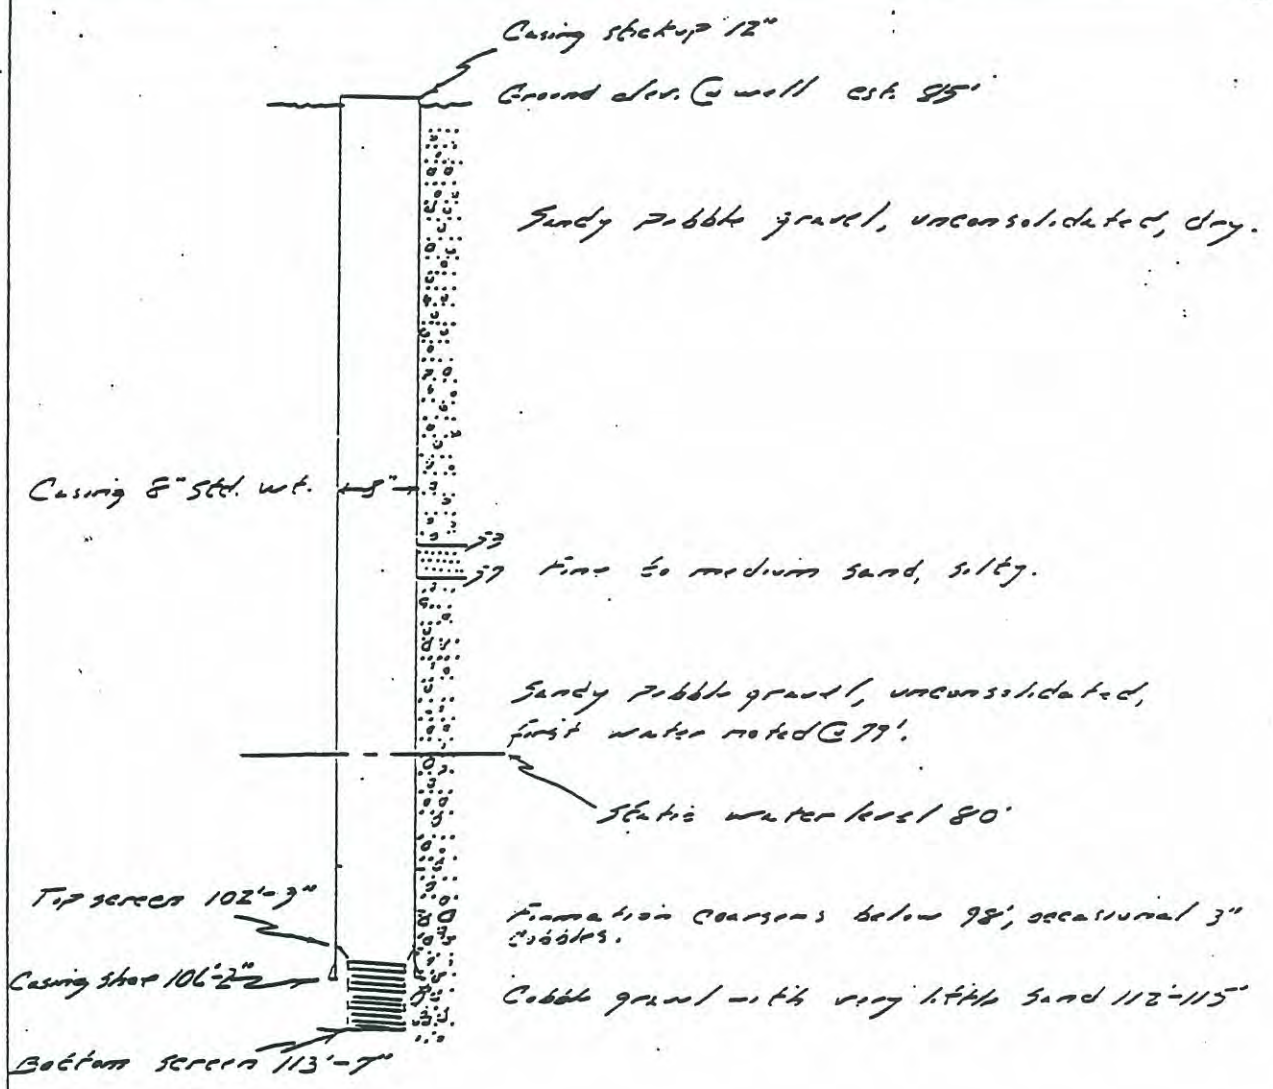 Casing stickup 12"
Ground elev. @ well est. 85'
Sandy pebble gravel, unconsolidated, dry.
Casing 8" Std. wt. 8"
53
57 Fine to medium sand, silty.
Sandy pebble gravel, unconsolidated,
first water noted @ 79'.
Static water level 80'
Top screen 102'-3"
Formation coarsens below 98', occasional 3"
cobbles.
Casing shoe 106'-2"
Cobble gravel with very little sand 112'-115'
Bottom screen 113'-7"